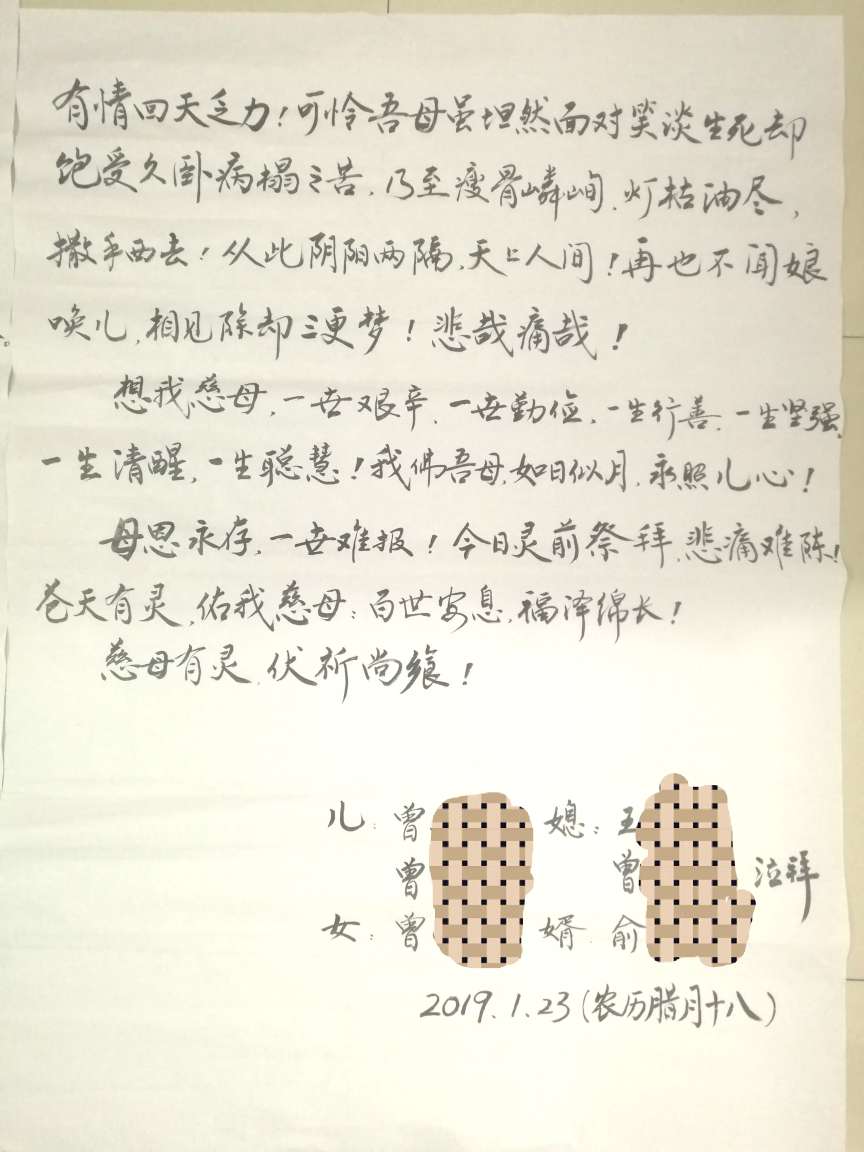 有情回天乏力！可怜吾母虽坦然面对笑谈生死却
饱受久卧病榻之苦，乃至瘦骨嶙峋、灯枯油尽，
撒手西去！从此阴阳两隔，天上人间！再也不闻娘
唤儿，相见除却三更梦！悲哉痛哉！
想我慈母，一世艰辛、一世勤俭，一生行善、一生坚强，
一生清醒，一生聪慧！我佛吾母，如日似月，永照儿心！
母恩永存，一世难报！今日灵前祭拜，悲痛难陈！
苍天有灵，佑我慈母：百世安息，福泽绵长！
慈母有灵，伏祈尚飨！
儿：曾 媳：王
曾 曾 泣拜
女：曾 婿：俞
2019.1.23(农历腊月十八)